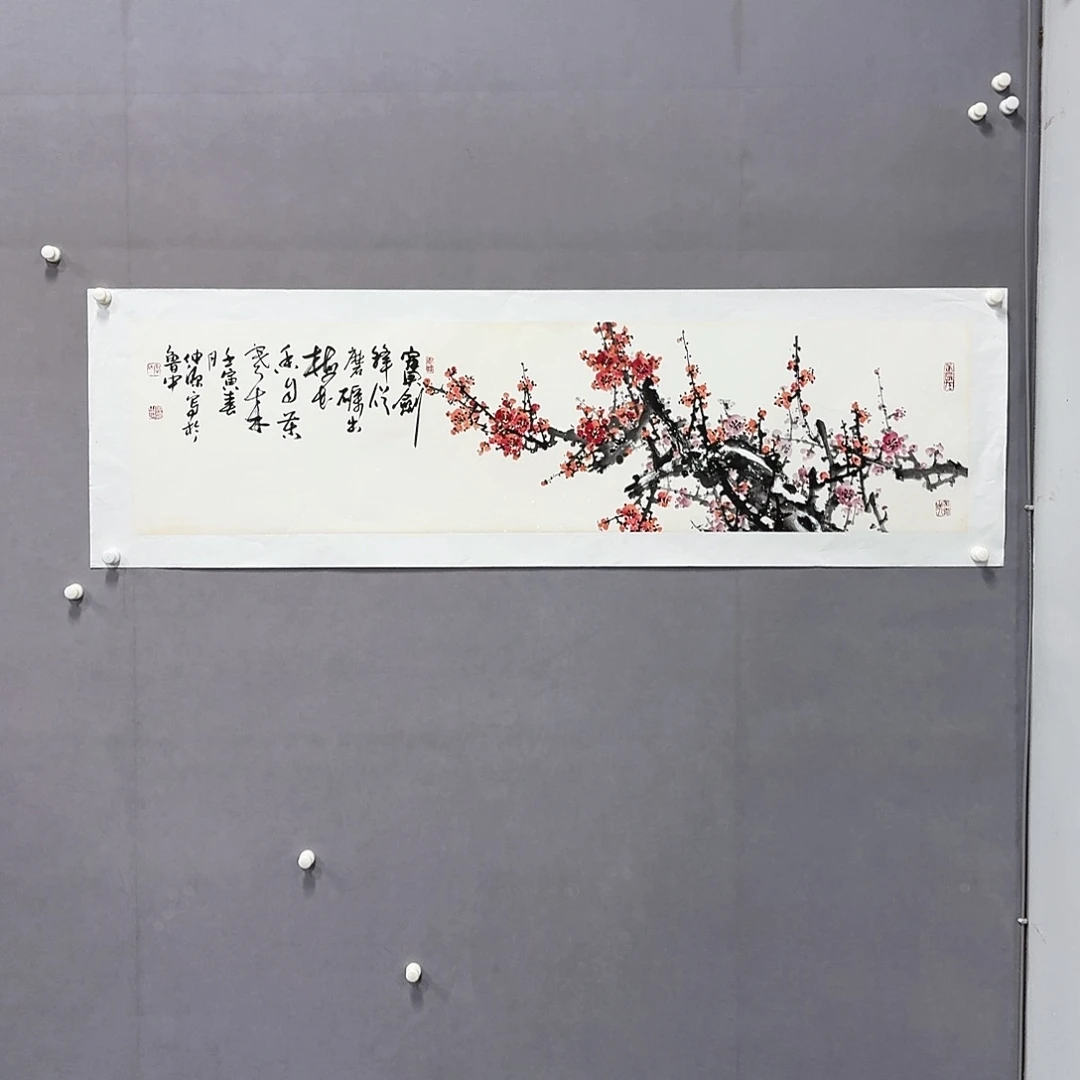 寳劍
鋒從
磨礪出
梅花
香自苦
寒来
壬寅春
月
仲源寫於
魯中